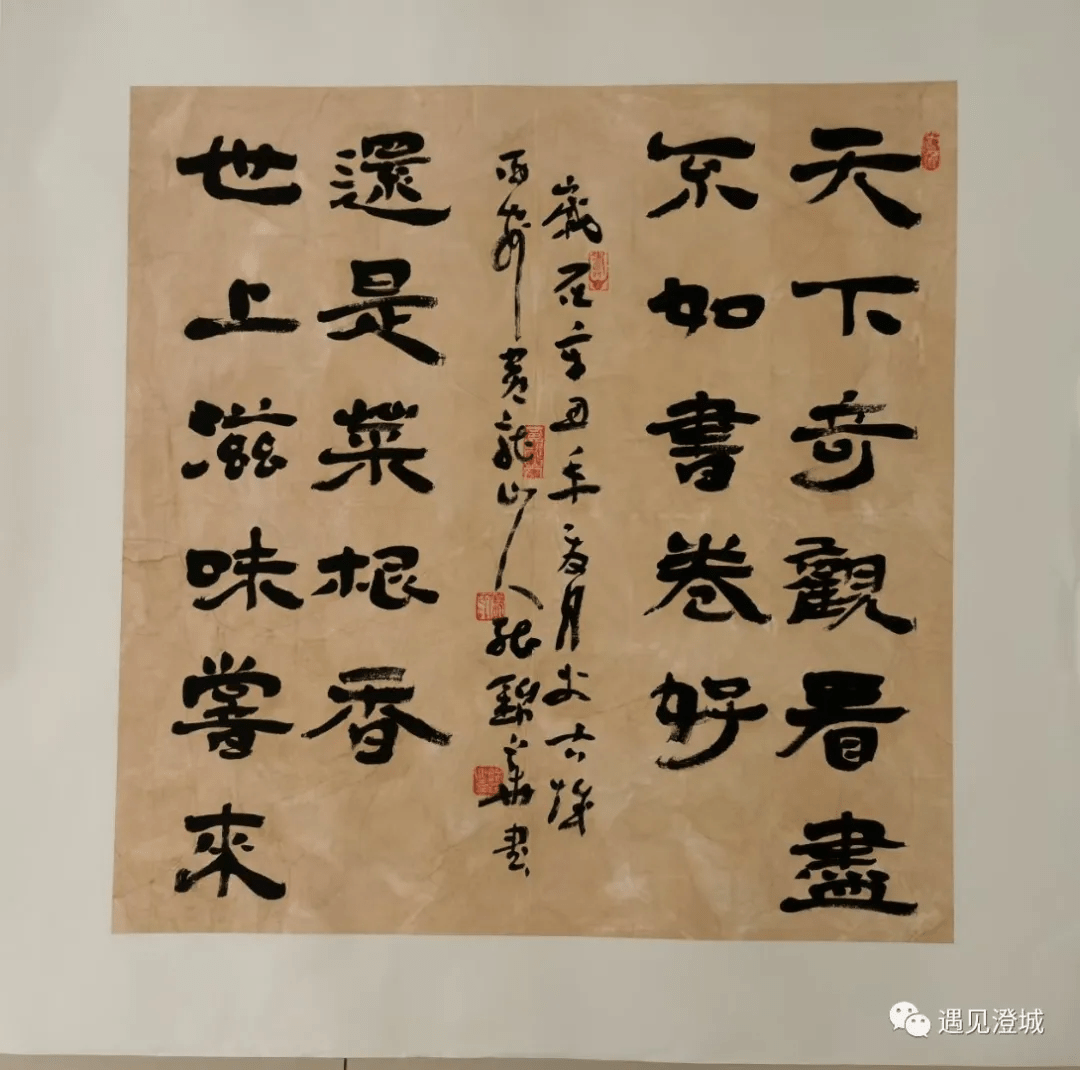 天下奇觀看盡
不如書卷好
世上滋味嘗來
還是菜根香
歲在辛丑年夏月於古徵
黃龍山人張錦華書
遇见澄城